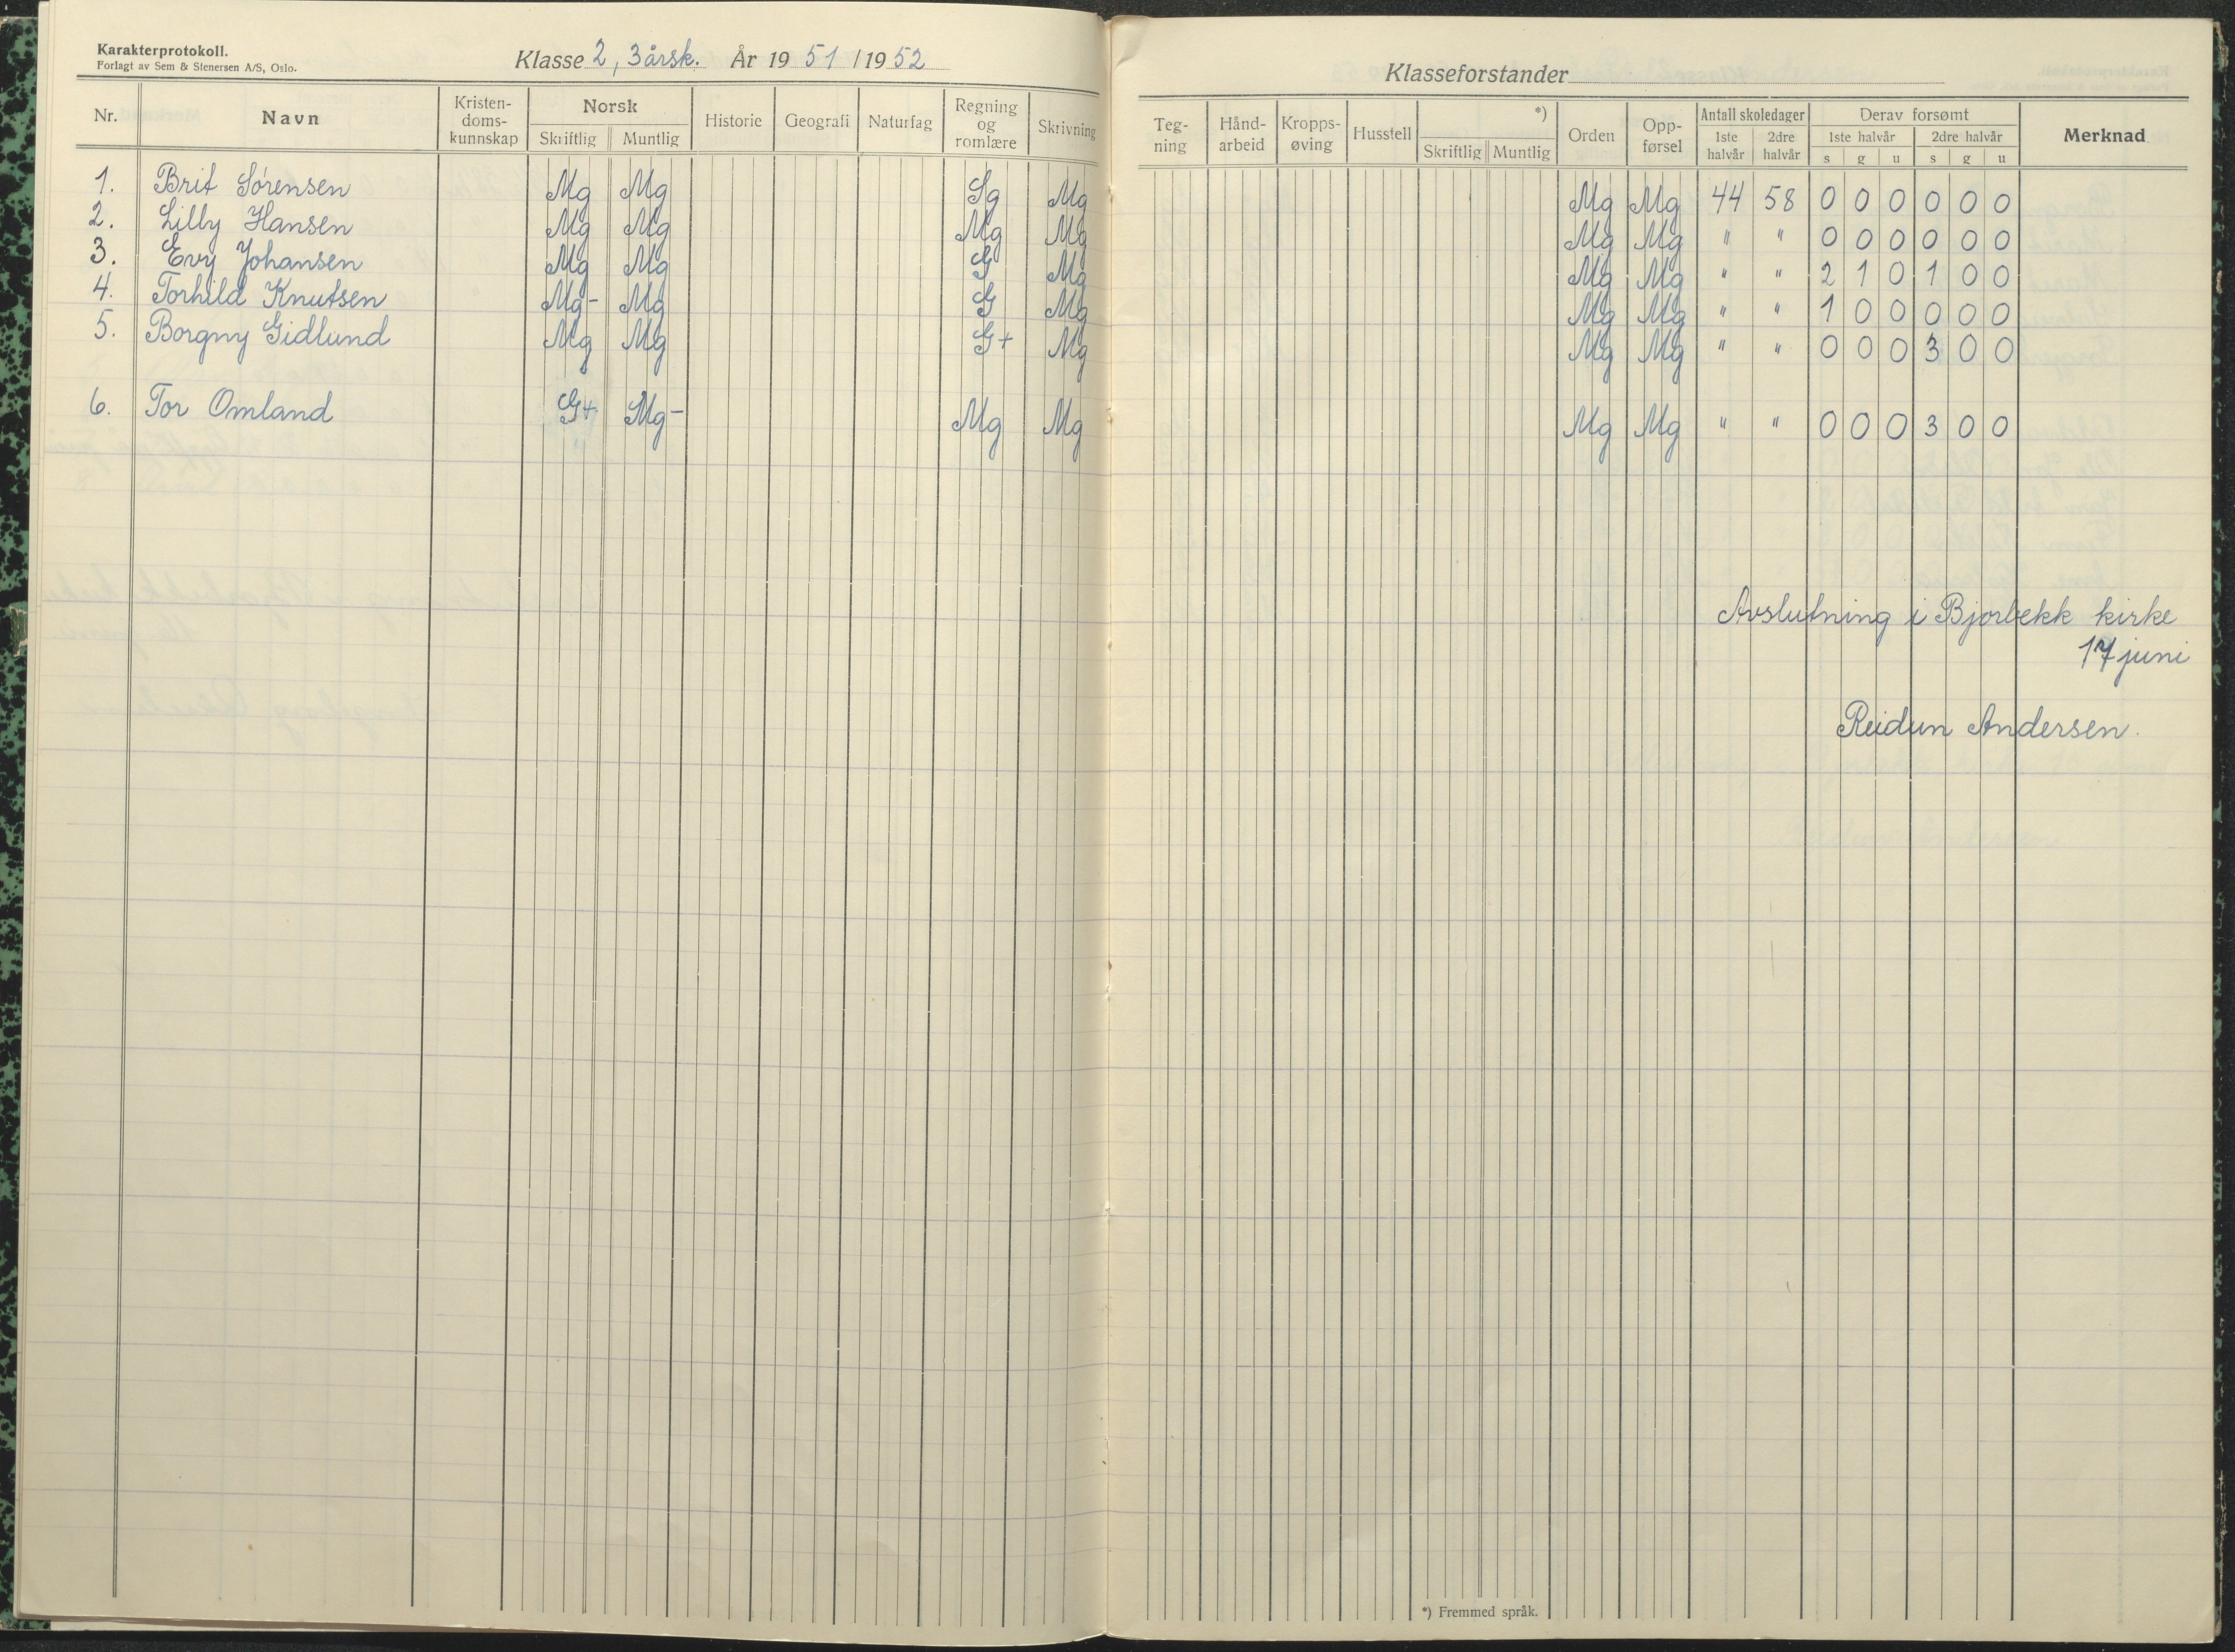 Karakterprotokoll.
Forlagt av Sem & Stenersen A/S, Oslo.
Klasse 2, 3 årsk. År 19 51 / 19 52
Klasseforstander
Nr. Navn Kristen-doms-kunnskap Norsk Skriftlig Muntlig Historie Geografi Naturfag Regning og romlære Skrivning Teg-ning Hånd-arbeid Kropps-øving Husstell *) Skriftlig Muntlig Orden Opp-førsel Antall skoledager 1ste halvår 2dre halvår Derav forsømt 1ste halvår s g u 2dre halvår s g u Merknad
1. Brit Sørensen Mg Mg Sg Mg Mg Mg 44 58 0 0 0 0 0 0
2. Lilly Hansen Mg Mg Mg Mg Mg Mg " " 0 0 0 0 0 0
3. Evy Johansen Mg Mg G Mg Mg Mg " " 2 1 0 1 0 0
4. Torhild Knutsen Mg- Mg G Mg Mg Mg " " 1 0 0 0 0 0
5. Borgny Gidlund Mg Mg G+ Mg Mg Mg " " 0 0 0 3 0 0
6. Tor Omland G+ Mg- Mg Mg Mg Mg " " 0 0 0 3 0 0
Avslutning i Bjorbekk kirke
17 juni
Reidun Andersen.
*) Fremmed språk.